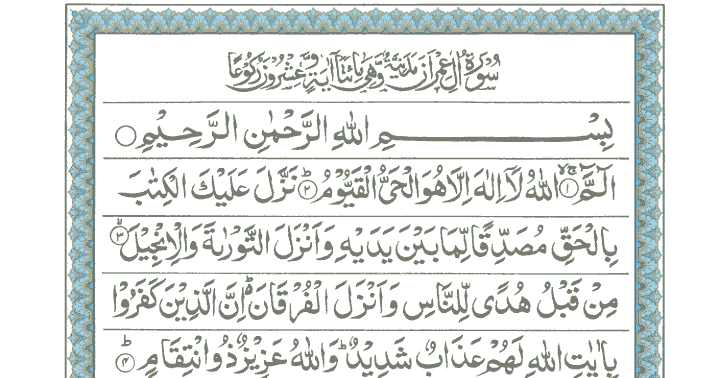 سُوْرَةُ اٰلِ عِمْرٰنَ مَدَنِيَّةٌ وَّهِيَ مِائَتَا اٰيَةٍ وَّعِشْرُوْنَ رُكُوْعًا
بِسْمِ اللهِ الرَّحْمٰنِ الرَّحِيْمِ
الٓمّٓ ۙ۝۱ اللهُ لَاۤ اِلٰهَ اِلَّا هُوَ الْحَيُّ الْقَيُّوْمُ ؕ۝۲ نَزَّلَ عَلَيْكَ الْكِتٰبَ
بِالْحَقِّ مُصَدِّقًا لِّمَا بَيْنَ يَدَيْهِ وَاَنْزَلَ التَّوْرٰىةَ وَالْاِنْجِيْلَ ۙ۝۳
مِنْ قَبْلُ هُدًى لِّلنَّاسِ وَاَنْزَلَ الْفُرْقَانَ ؕ اِنَّ الَّذِيْنَ كَفَرُوْا
بِاٰيٰتِ اللهِ لَهُمْ عَذَابٌ شَدِيْدٌ ؕ وَاللهُ عَزِيْزٌ ذُو انْتِقَامٍ ؕ۝۴